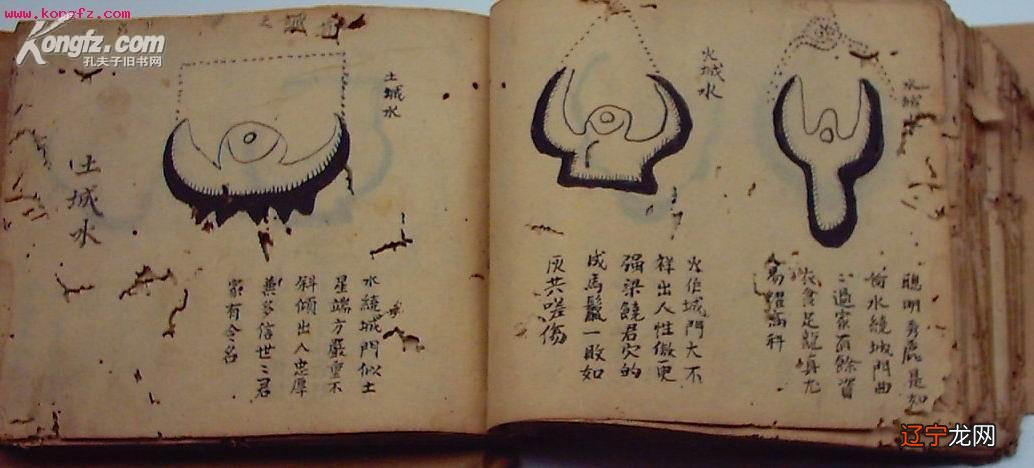 www.kongfz.com
Kongfz.com
孔夫子旧书网
水城
聰明秀麗是如
水繞城門曲
過家有餘資
衣食足龍真穴
易耀高科
火城水
火作城門大不
祥出人性傲更
强梁饒君穴的
成馬鬣一敗如
灰共嗟傷
土城水
水繞城門似土
星端方嚴重不
斜傾出人忠厚
兼多信世〻君
家有令名
土城水
辽宁龙网